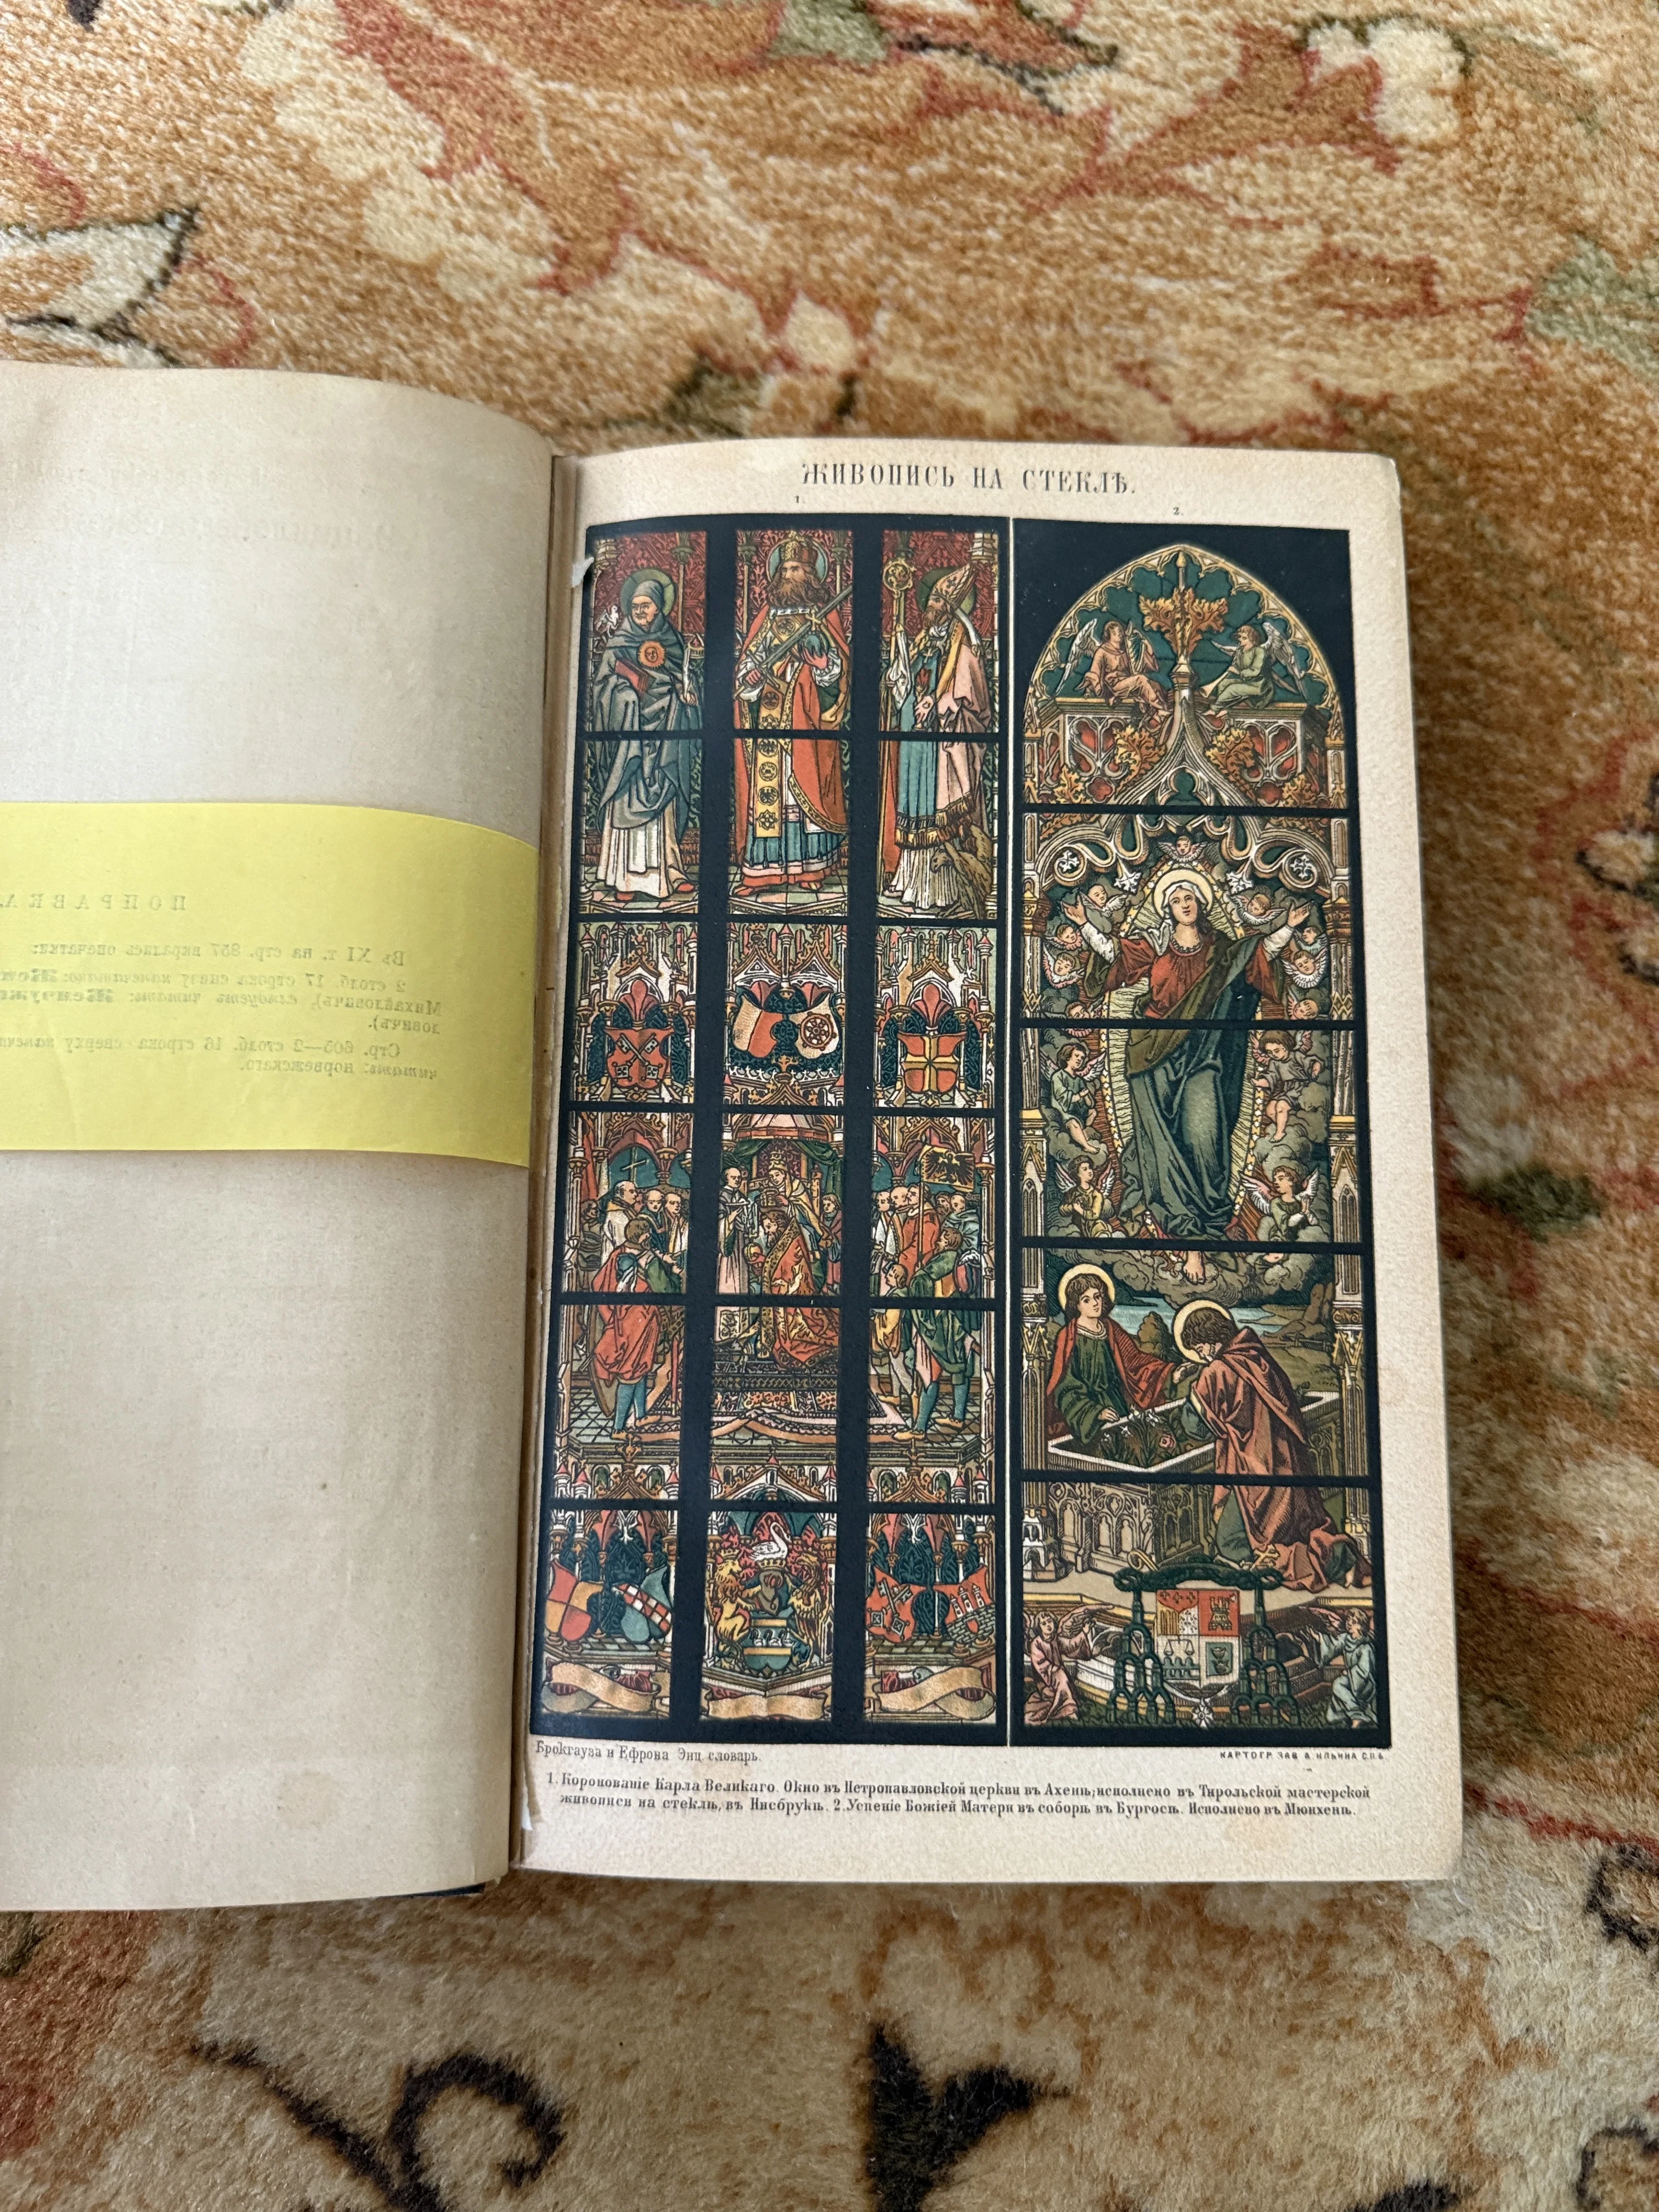 ПОПРАВКА.
Въ XI т. на стр. 857 вкралась опечатка:
2 столб. 17 строка снизу напечатано:
Михайловичъ), слѣдуетъ читать: Жемчужн
ловичъ).
Стр. 605—2 столб. 16 строка сверху напеч
читать: норвежскаго.
ЖИВОПИСЬ НА СТЕКЛѢ.
1.
2.
Брокгауза и Ефрона Энц. словарь.
КАРТОГР. ЗАВ. А. ИЛЬИНА С.П.Б.
1. Коронованіе Карла Великаго. Окно въ Петропавловской церкви въ Ахенѣ; исполнено въ Тирольской мастерской
живописи на стеклѣ, въ Инсбрукѣ. 2. Успеніе Божіей Матери въ соборѣ въ Бургосѣ. Исполнено въ Мюнхенѣ.